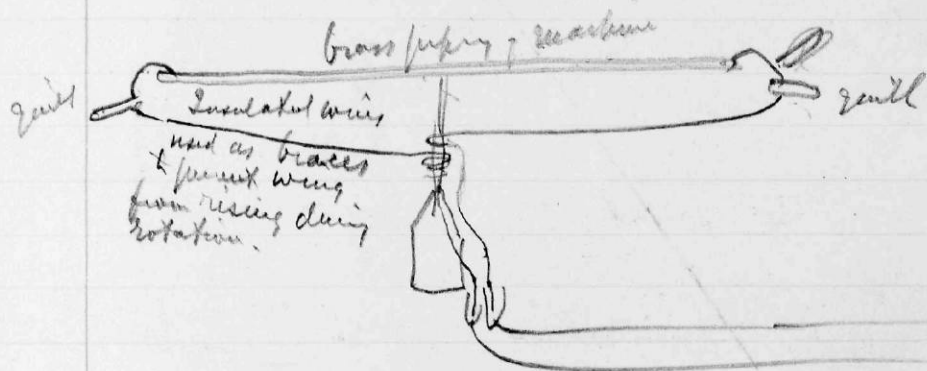 brass piping, machine
quill
quill
Insulated wires
used as braces
& prevent wing
from rising during
rotation.